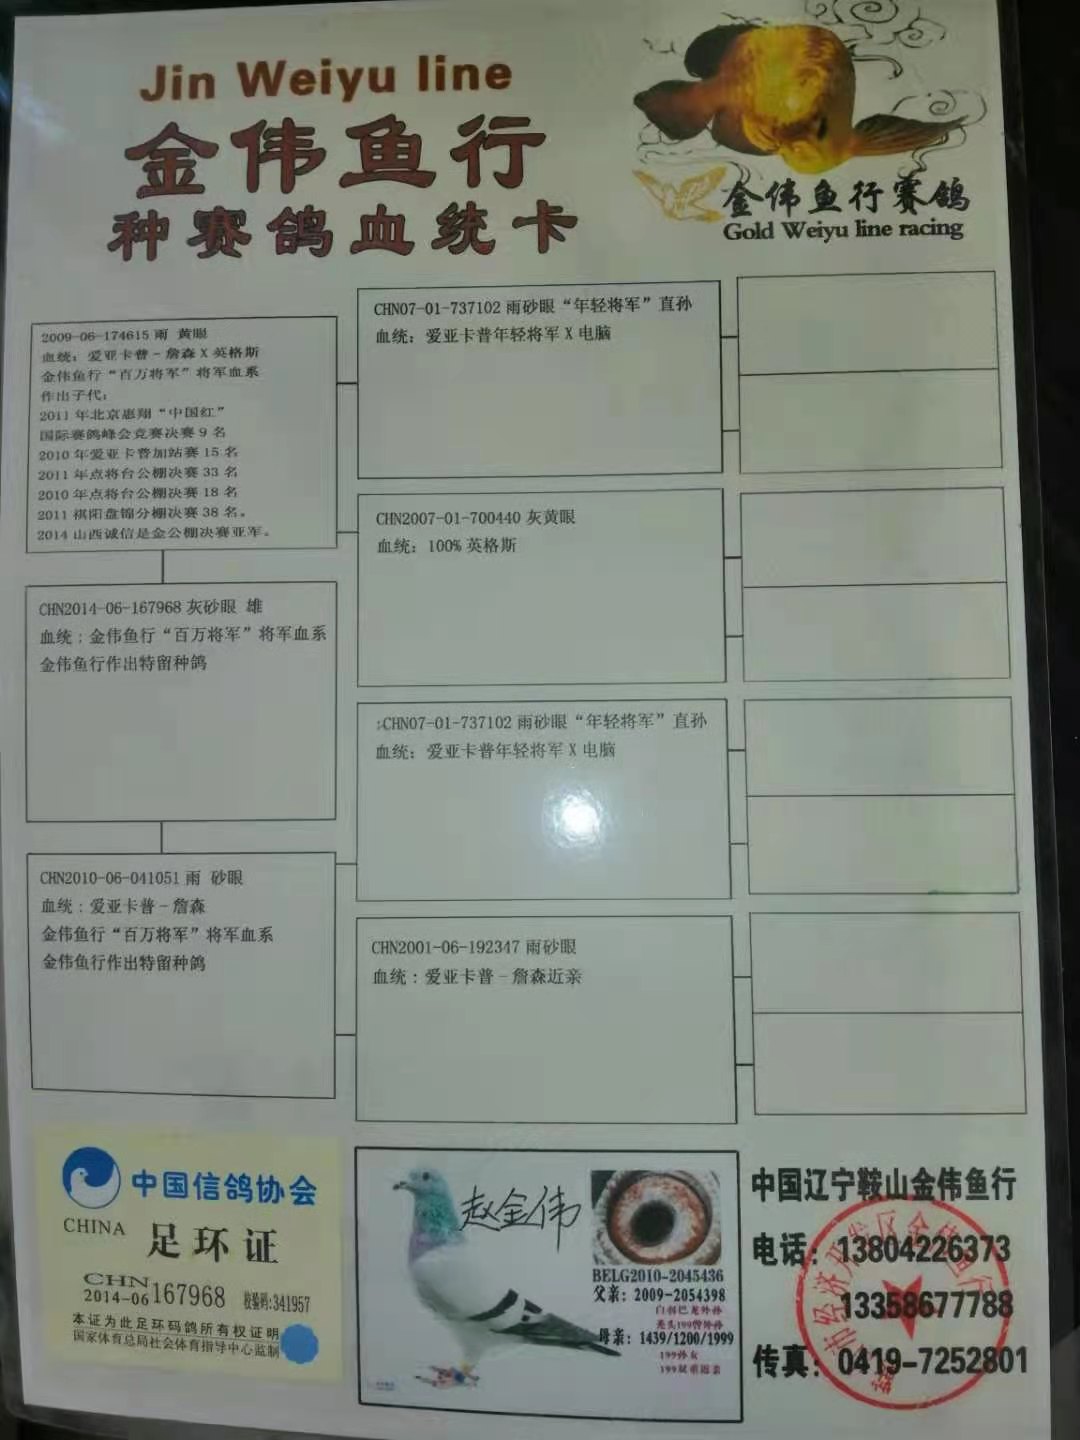 Jin Weiyu line
金伟鱼行
种赛鸽血统卡
金伟鱼行赛鸽
Gold Weiyu line racing
2009-06-174615 雨 黄眼
血统：爱亚卡普－詹森 X 英格斯
金伟鱼行“百万将军”将军血系
作出子代：
2011 年北京惠翔“中国红”
国际赛鸽峰会竞赛决赛 9 名
2010 年爱亚卡普加站赛 15 名
2011 年点将台公棚决赛 33 名
2010 年点将台公棚决赛 18 名
2011 祺阳盘锦分棚决赛 38 名。
2014 山西诚信是金公棚决赛亚军。
CHN2014-06-167968 灰砂眼 雄
血统：金伟鱼行“百万将军”将军血系
金伟鱼行作出特留种鸽
CHN2010-06-041051 雨 砂眼
血统：爱亚卡普－詹森
金伟鱼行“百万将军”将军血系
金伟鱼行作出特留种鸽
CHN07-01-737102 雨砂眼“年轻将军”直孙
血统：爱亚卡普年轻将军 X 电脑
CHN2007-01-700440 灰黄眼
血统：100%英格斯
:CHN07-01-737102 雨砂眼“年轻将军”直孙
血统：爱亚卡普年轻将军 X 电脑
CHN2001-06-192347 雨砂眼
血统：爱亚卡普－詹森近亲
中国信鸽协会
CHINA
足环证
CHN
2014-06 167968 校验码:341957
本证为此足环码鸽所有权证明
国家体育总局社会体育指导中心监制
赵金伟
BELG2010-2045436
父亲：2009-2054398
母亲：1439/1200/1999
199孙女
中国辽宁鞍山金伟鱼行
电话：13804226373
13358677788
传真：0419-7252801